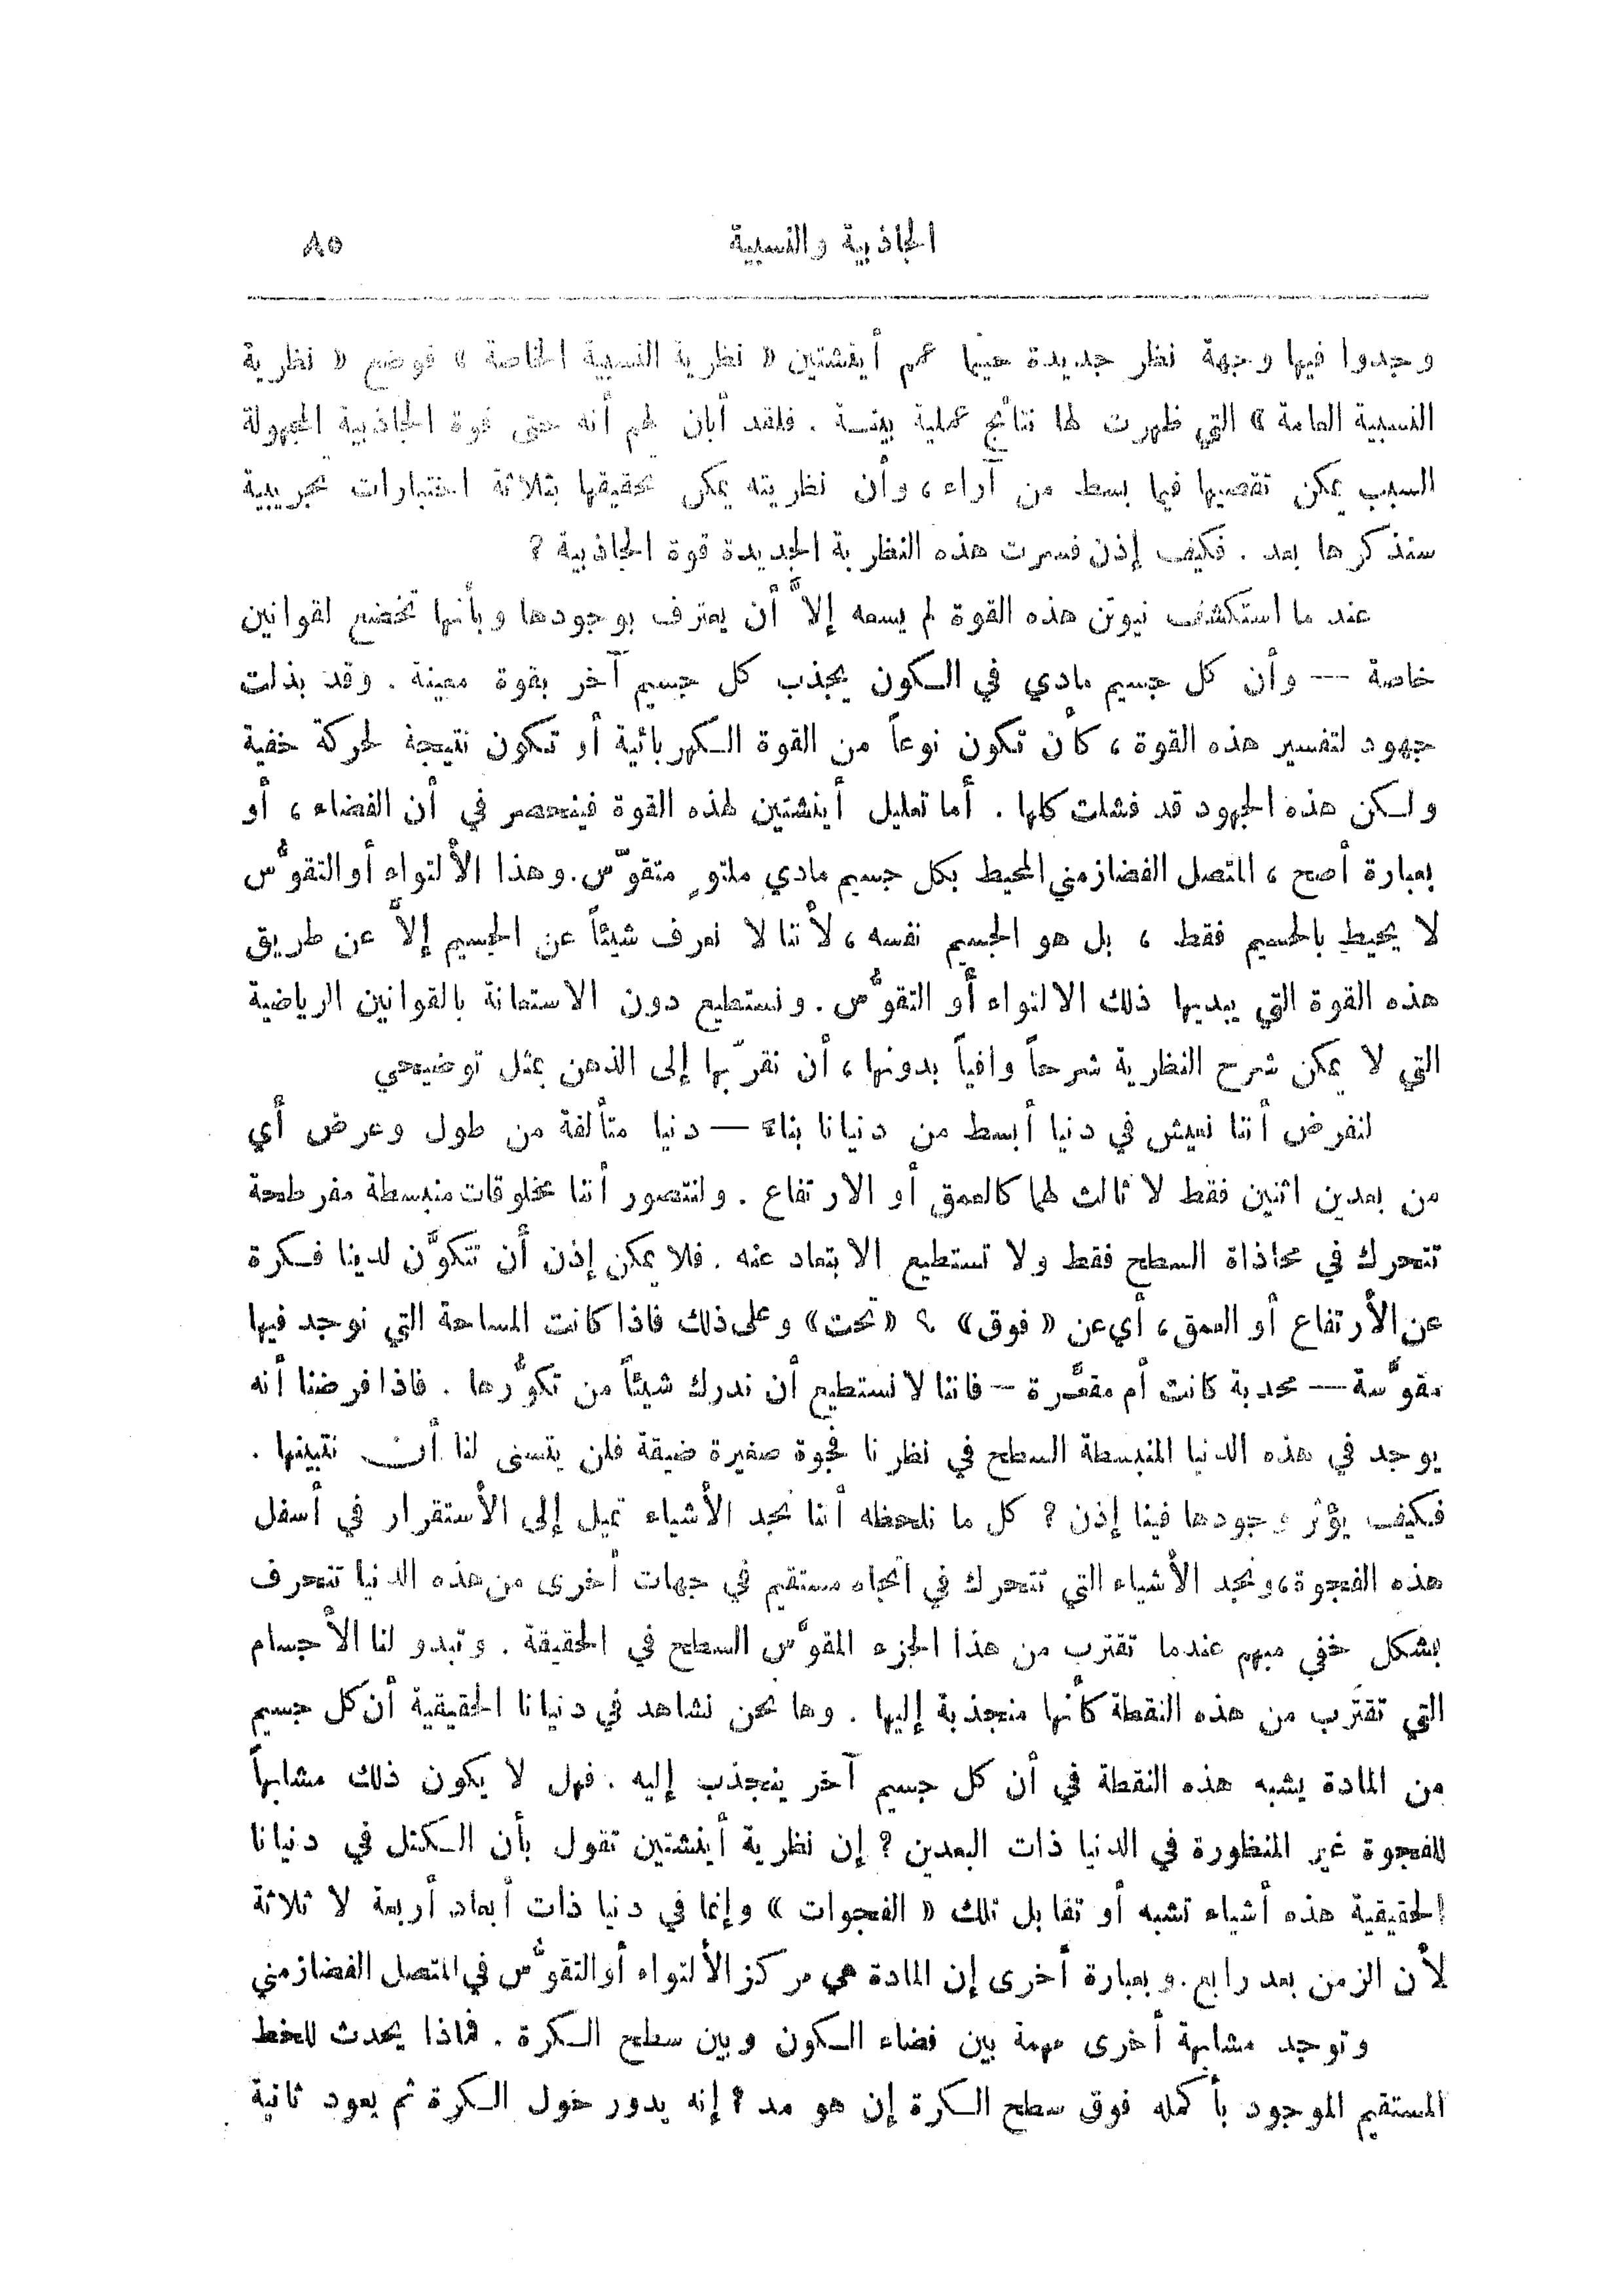 الجاذبية والنسبية ٨٥
وجدوا فيها وجهة نظر جديدة حينما عمم أينشتين « نظرية النسبية الخاصة » فوضع « نظرية
النسبية العامة » التي ظهرت لها نتائج عملية بينـة . فلقد أبان لهم أنه حتى قوة الجاذبية المجهولة
السبب يمكن تقصيها فيما بسط من آراء ، وأن نظريته يمكن تحقيقها بثلاثة اختبارات تجريبية
سنذكرها بعد . فكيف إذن فسرت هذه النظرية الجديدة قوة الجاذبية ؟
عند ما استكشف نيوتن هذه القوة لم يسعه إلاَّ أن يعترف بوجودها وبأنها تخضع لقوانين
خاصة — وأن كل جسيم مادي في الكون يجذب كل جسيم آخر بقوة معينة . وقد بذلت
جهود لتفسير هذه القوة ، كأن تكون نوعاً من القوة الكهربائية أو تكون نتيجة لحركة خفية
ولكن هذه الجهود قد فشلت كلها . أما تعليل أينشتين لهذه القوة فينحصر في أن الفضاء ، أو
بعبارة أصح ، المتصل الفضازمني المحيط بكل جسيم مادي ملتوٍ متقوّس . وهذا الألتواء أو التقوُّس
لا يحيط بالجسيم فقط ، بل هو الجسيم نفسه ، لأننا لا نعرف شيئاً عن الجسيم إلاَّ عن طريق
هذه القوة التي يبديها ذلك الالتواء أو التقوُّس . ونستطيع دون الاستعانة بالقوانين الرياضية
التي لا يمكن شرح النظرية شرحاً وافياً بدونها ، أن نقرّبها إلى الذهن بمثل توضيحي
لنفرض أننا نعيش في دنيا أبسط من دنيانا بناءً — دنيا متألفة من طول وعرض أي
من بعدين اثنين فقط لا ثالث لهما كالعمق أو الارتفاع . ولنتصور أننا مخلوقات منبسطة مفرطحة
تتحرك في محاذاة السطح فقط ولا تستطيع الابتعاد عنه . فلا يمكن إذن أن تتكوَّن لدينا فكرة
عن الأرتفاع أو العمق ، أي عن « فوق » ؟ « تحت » وعلى ذلك فاذا كانت المساحة التي نوجد فيها
مقوَّسة — محدبة كانت أم مقعَّرة — فاننا لا نستطيع أن ندرك شيئاً من تكوُّرها . فاذا فرضنا أنه
يوجد في هذه الدنيا المنبسطة السطح في نظرنا فجوة صغيرة ضيقة فلن يتسنى لنا أن نتبينها .
فكيف يؤثر وجودها فينا إذن ؟ كل ما نلحظه أننا نجد الأشياء تميل إلى الأستقرار في أسفل
هذه الفجوة ، ونجد الأشياء التي تتحرك في اتجاه مستقيم في جهات أخرى من هذه الدنيا تنحرف
بشكل خفي مبهم عندما تقترب من هذا الجزء المقوَّس السطح في الحقيقة . وتبدو لنا الأجسام
التي تقترب من هذه النقطة كأنها منجذبة إليها . وها نحن نشاهد في دنيانا الحقيقية أن كل جسيم
من المادة يشبه هذه النقطة في أن كل جسيم آخر ينجذب إليه . فهل لا يكون ذلك مشابهاً
للفجوة غير المنظورة في الدنيا ذات البعدين ؟ إن نظرية أينشتين تقول بأن الكتل في دنيانا
الحقيقية هذه أشياء تشبه أو تقابل تلك « الفجوات » وإنما في دنيا ذات أبعاد أربعة لا ثلاثة
لأن الزمن بعد رابع . وبعبارة أخرى إن المادة هي مركز الألتواء أو التقوُّس في المتصل الفضازمني
وتوجد مشابهة أخرى مهمة بين فضاء الكون وبين سطح الكرة . فماذا يحدث للخط
المستقيم الموجود بأكمله فوق سطح الكرة إن هو مد ؟ إنه يدور حول الكرة ثم يعود ثانية